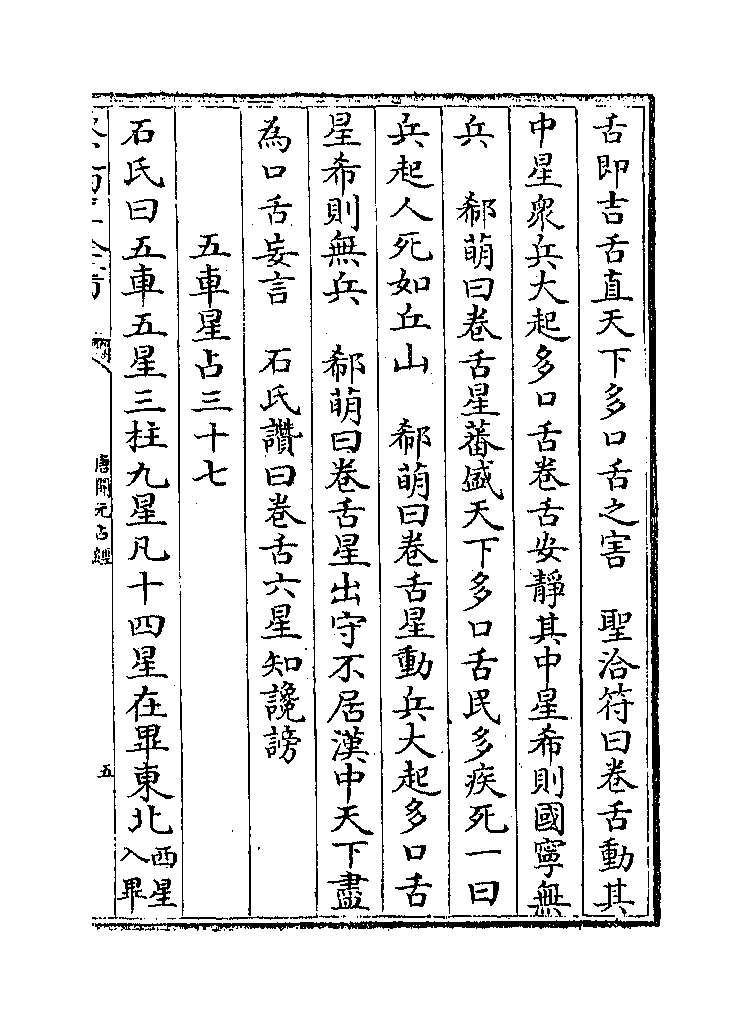 舌即吉舌直天下多口舌之害　聖洽符曰卷舌動其
中星衆兵大起多口舌卷舌安靜其中星希則國寧無
兵　郗萌曰卷舌星蕃盛天下多口舌民多疾死一曰
兵起人死如丘山　郗萌曰卷舌星動兵大起多口舌
星希則無兵　郗萌曰卷舌星出守不居漢中天下盡
為口舌妄言　石氏讚曰卷舌六星知讒謗
五車星占三十七
石氏曰五車五星三柱九星凡十四星在畢東北西星
入畢
唐開元占經
五